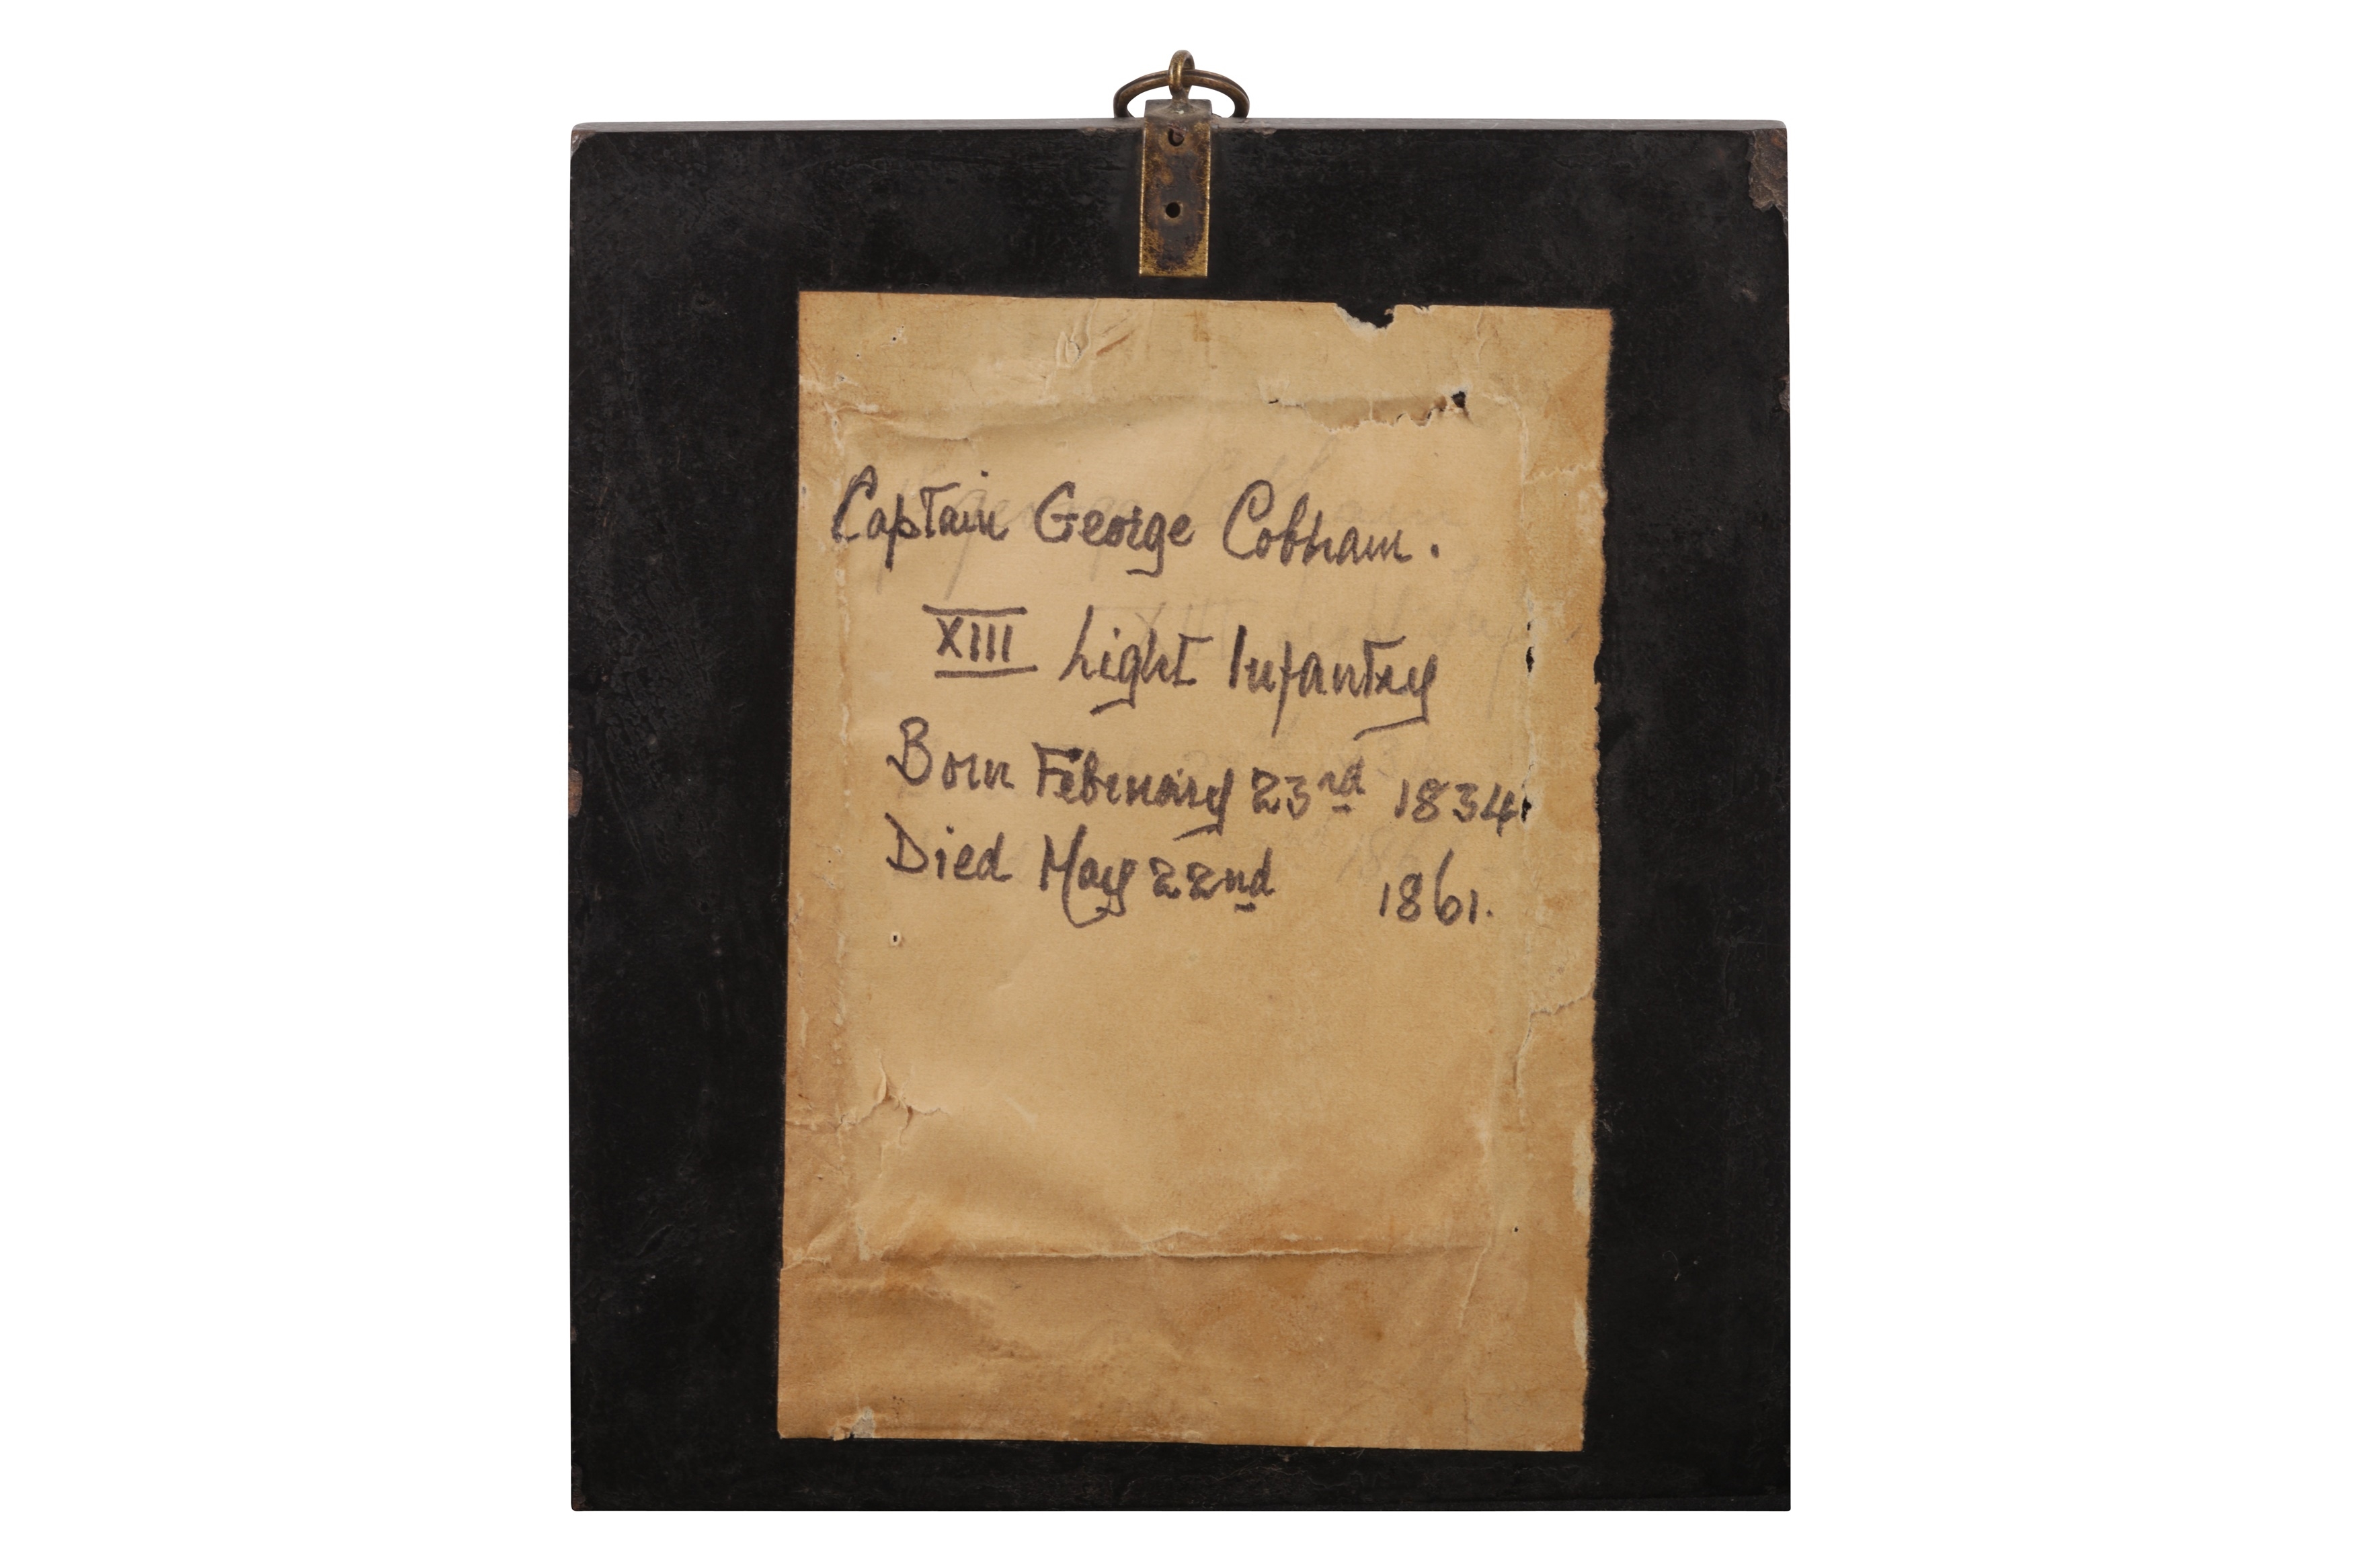 Captain George Cobham.
XIII Light Infantry
Born February 23rd 1834
Died May 22nd 1861.